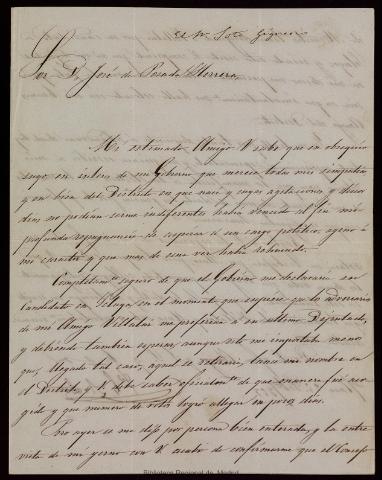 el Sr. Soto
Sor. D. José de Posada Herrera,
Mi estimado Amigo: V. sabe que en obsequio
suyo, en interes de un Gobierno que merecia toda mis simpatias
y en bien del Distrito en que nací y cuyas agitaciones y desor
denes no podian serme indiferentes habia vencido al fin mi
profunda repugnancia de aspirar á un cargo político, ageno á
mi caracter y que mas de una vez habia rehusado.
Completamte. seguro de que el Gobierno me declararia su
candidato en el momento que supiese que los adversarios
de mi Amigo Villalar me preferian á su ultimo Diputado,
y debiendo tambien esperar, aunque esto me importaba menos
que, llegado tal caso, aquel se retirari, lancé mi nombre en
el Distrito y V. debe saber oficialmte. de que manera fué aco
gido y que numero de votos logró allegar en pocos dias.
Pero ayer se me dijo por persona bien enterada, y la entre
vista de mi yerno con V. acabó de confirmarme que el Consejo
Biblioteca Regional de Madrid